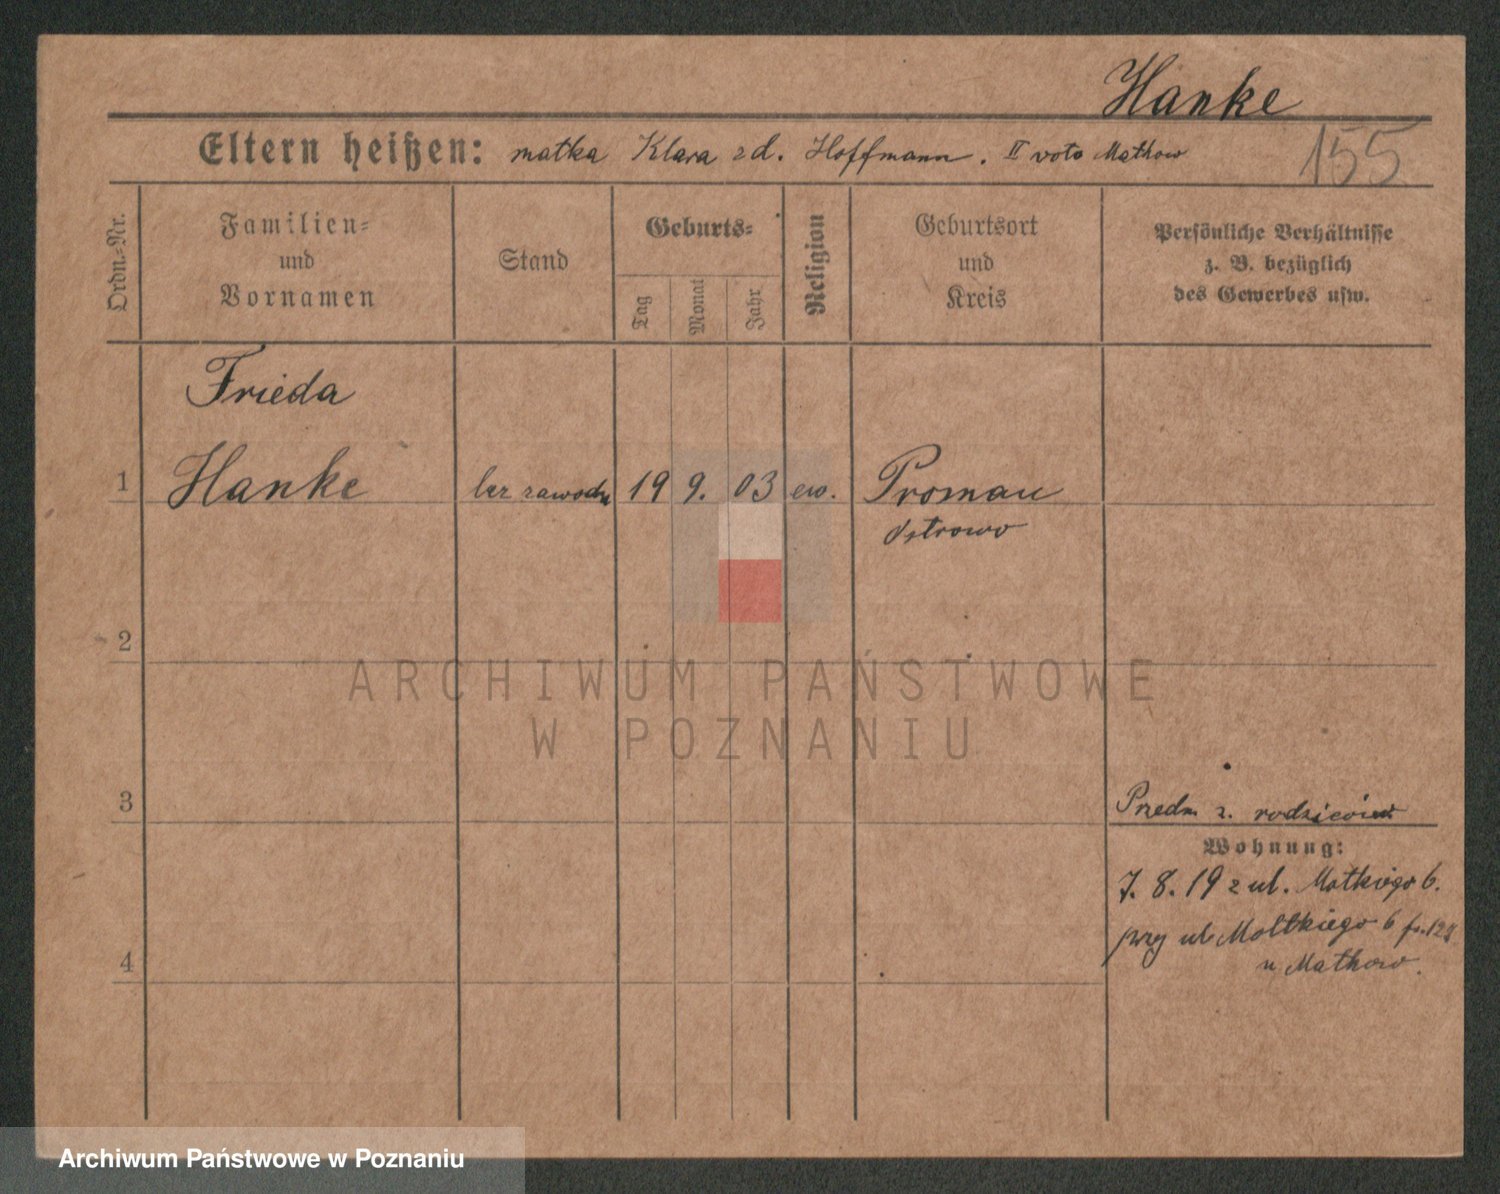 Hanke
Eltern heißen: matka Klara zd. Hoffmann. II voto Mathow
155
Ordn.-Nr.
Familien-
und
Vornamen
Stand
Geburts-
Tag
Monat
Jahr
Religion
Geburtsort
und
Kreis
Persönliche Verhältnisse
z. B. bezüglich
des Gewerbes usw.
Frieda
1 Hanke bez zawodu 19 9. 03 ew. Promau
Ostrowo
2
ARCHIWUM PAŃSTWOWE
W POZNANIU
3
Przedm z. rodziców
Wohnung:
7. 8. 19 z ul. 6.
przy ul Moltkiego 6
4
u Mathow.
Archiwum Państwowe w Poznaniu